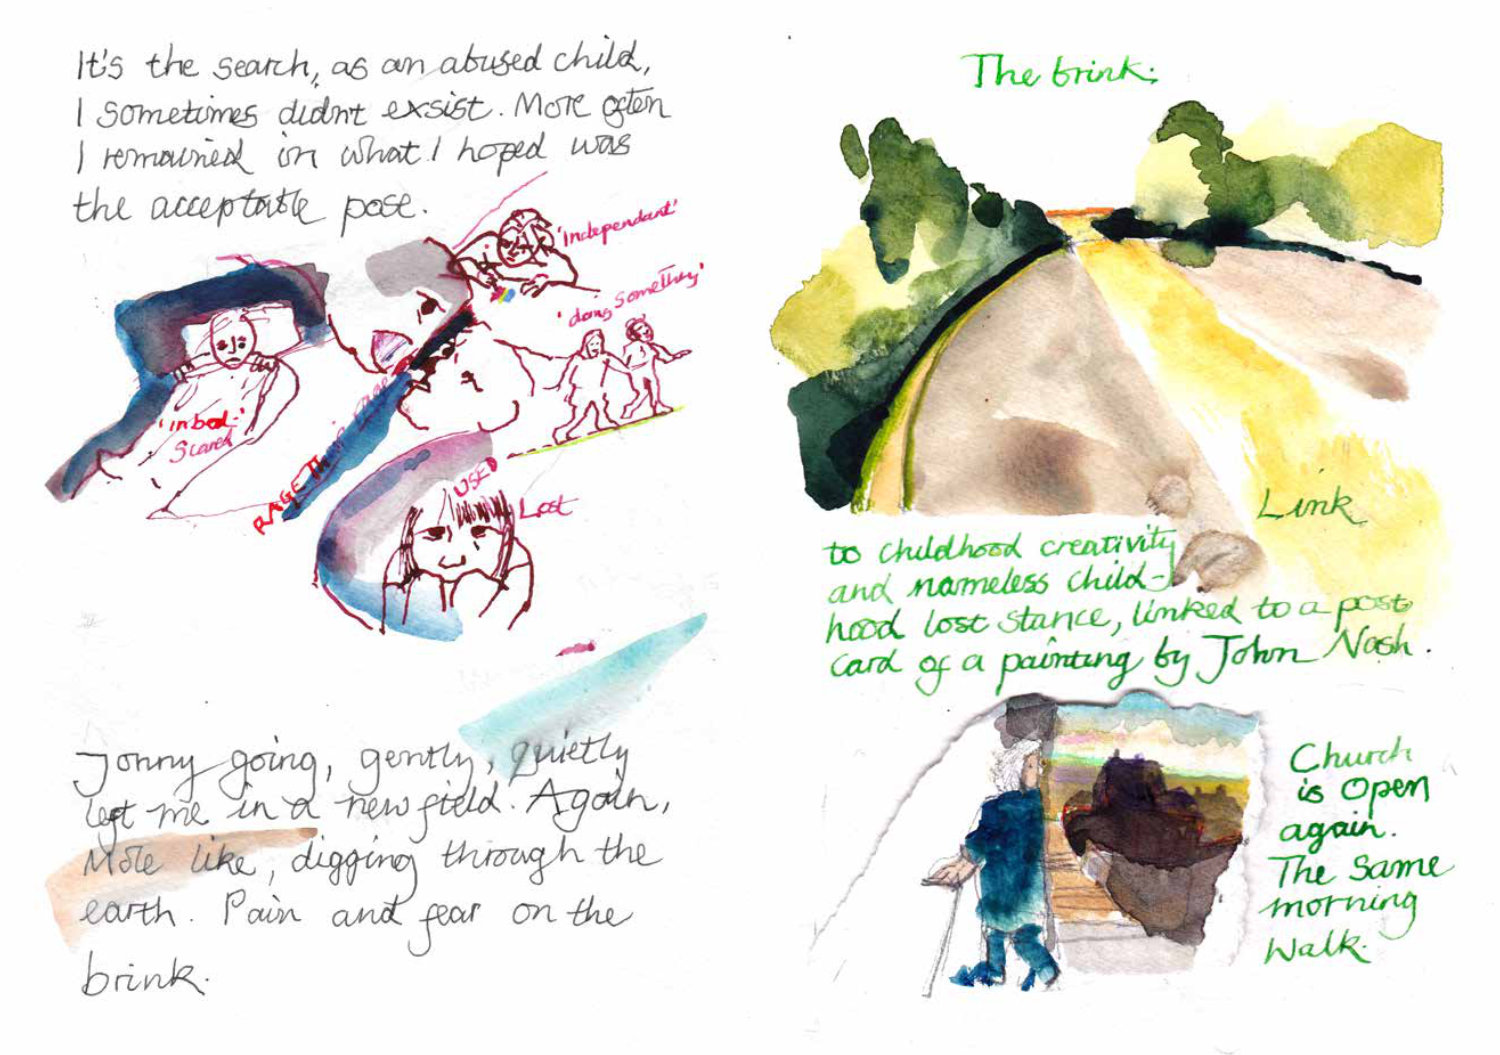 It's the search, as an abused child,
I sometimes didn't exsist. More often
I remained in what I hoped was
the acceptable pose.
'independant'
'doing something'
'in bed'
Scared
RAGE
USED
Lost
Jonny going, gently, quietly
left me in a new field. Again,
More like, digging through the
earth. Pain and fear on the
brink.
The brink:
Link
to childhood creativity
and nameless child-
hood lost stance, linked to a post
card of a painting by John Nash.
Church
is open
again.
The same
morning
walk.